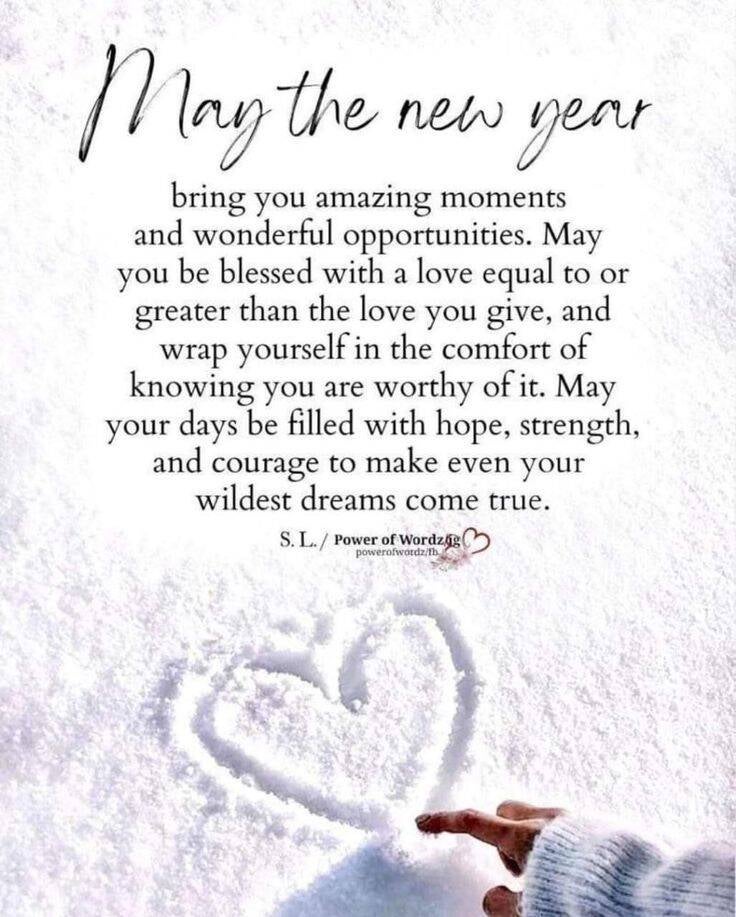 May the new year
bring you amazing moments
and wonderful opportunities. May
you be blessed with a love equal to or
greater than the love you give, and
wrap yourself in the comfort of
knowing you are worthy of it. May
your days be filled with hope, strength,
and courage to make even your
wildest dreams come true.
S. L. / Power of Wordz
powerofwordz/fb